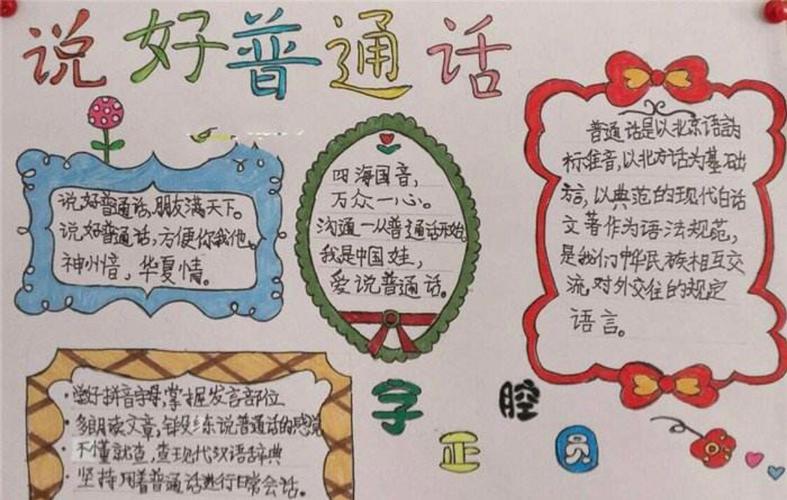 说好普通话
说好普通话,朋友满天下。
说好普通话,方便你我他。
神州音,华夏情。
四海国音,
万众一心。
沟通一从普通话开始。
我是中国娃,
爱说普通话。
普通话是以北京语音为
标准音,以北方话为基础
方言,以典范的现代白话
文著作为语法规范,
是我们中华民族相互交
流对外交往的规定
语言。
·学好拼音字母,掌握发言部位
·多朗读文章,锻练说普通话的感觉
·不懂就查,查现代汉语辞典
·坚持用着普通话进行日常会话。
字正腔员